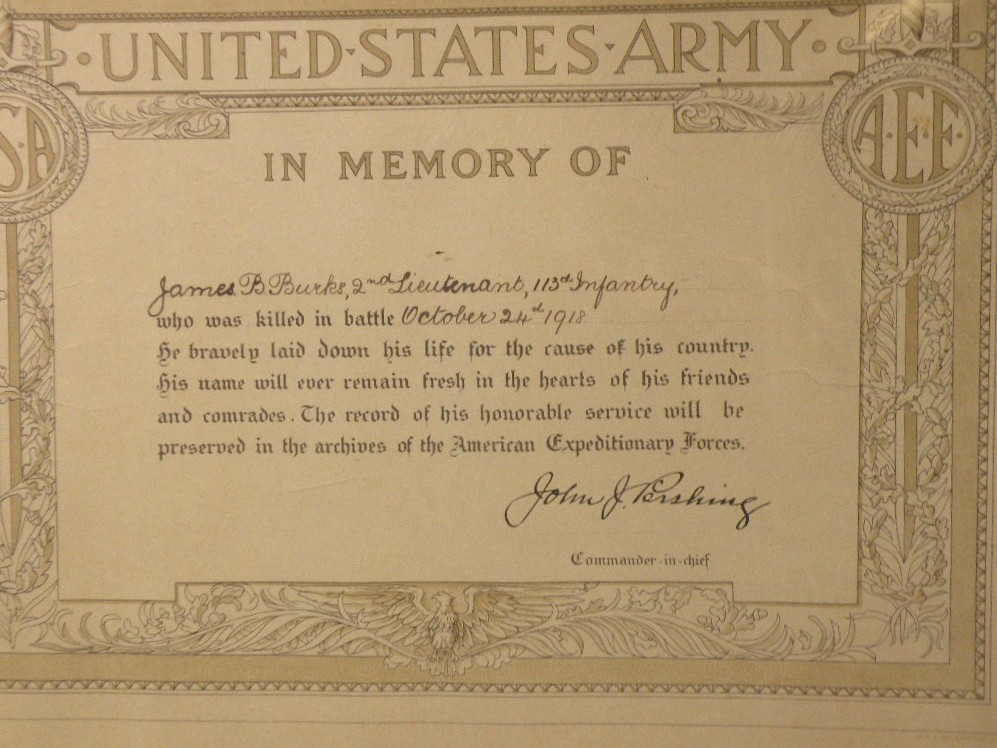 ·UNITED·STATES·ARMY·
S·A
A·E·F·
IN MEMORY OF
James B. Burks, 2nd Lieutenant, 113th Infantry,
who was killed in battle October 24th 1918
He bravely laid down his life for the cause of his country.
His name will ever remain fresh in the hearts of his friends
and comrades. The record of his honorable service will be
preserved in the archives of the American Expeditionary Forces.
John J. Pershing
Commander-in-chief